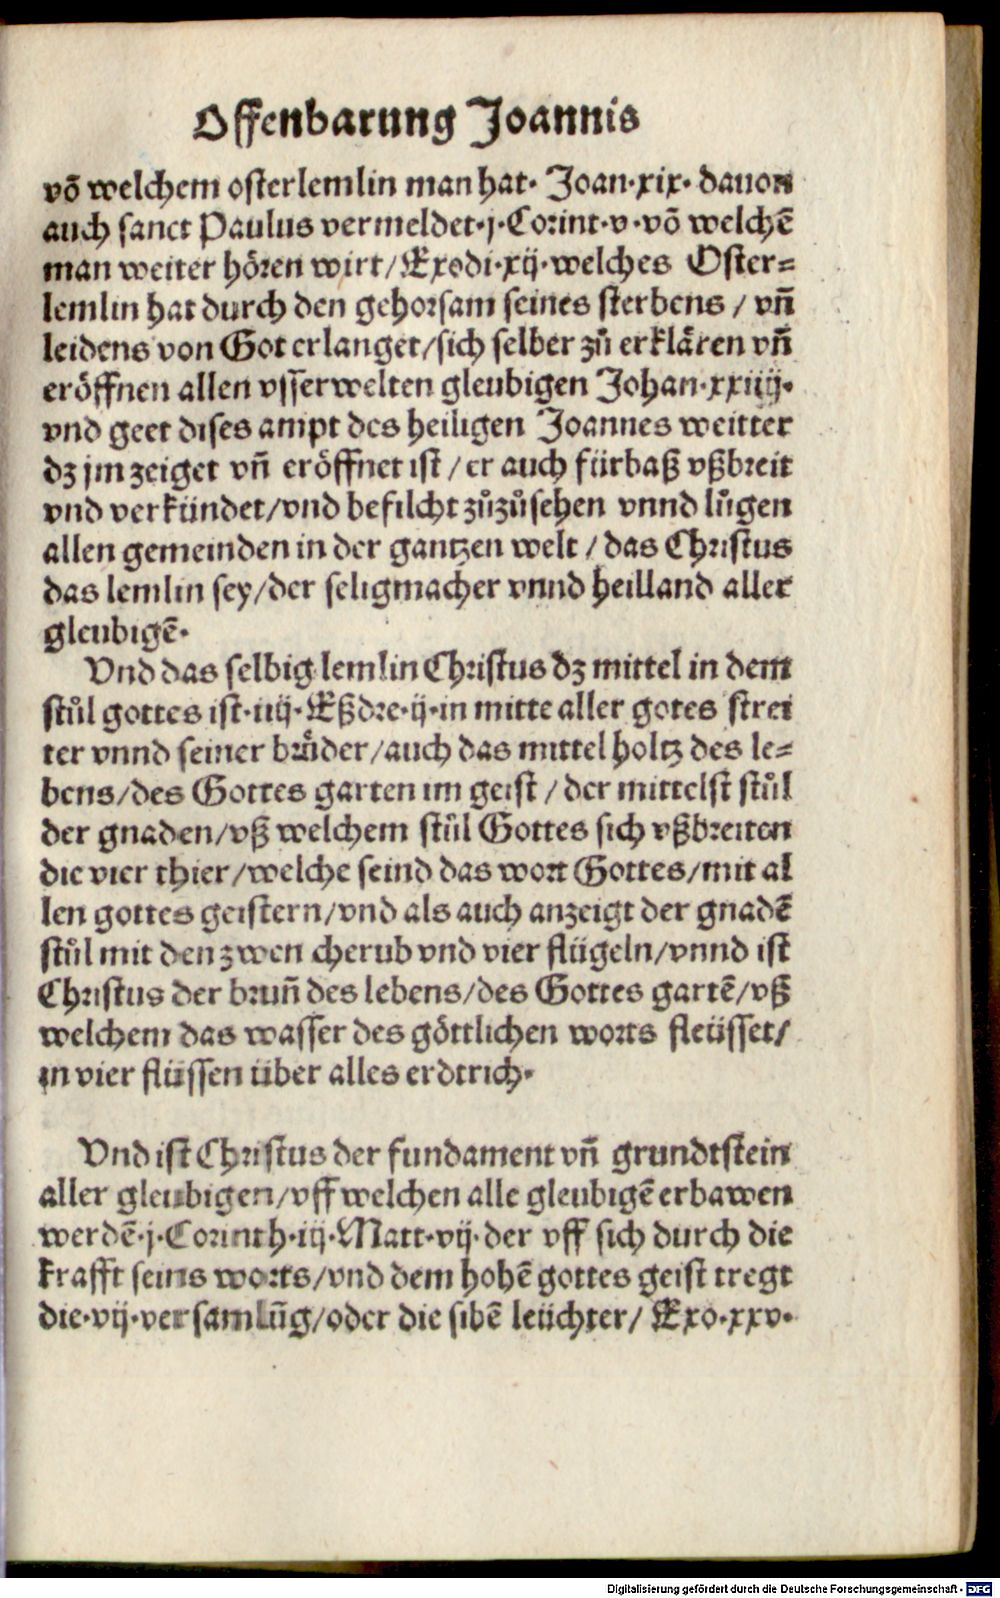 Offenbarung Joannis
võ welchem osterlemlin man hat· Joan·xix· dauon
auch sanct Paulus vermeldet·j·Corint·v·võ welchẽ
man weiter hören wirt/Exodi·xij·welches Oster=
lemlin hat durch den gehorsam seines sterbens / vñ
leidens von Got erlanget/sich selber zů erklären vñ
eröffnen allen vsserwelten gleubigen Johan·xxiiij·
vnd geet dises ampt des heiligen Joannes weitter
dz jm zeiget vñ eröffnet ist / er auch fürbaß vßbreit
vnd verkündet/vnd befilcht zůzůsehen vnnd lůgen
allen gemeinden in der gantzen welt / das Christus
das lemlin sey/der seligmacher vnnd heilland aller
gleubigẽ·
Vnd das selbig lemlin Christus dz mittel in dem
stůl gottes ist·iiij·Eßdre·ij·in mitte aller gotes strei
ter vnnd seiner brůder/auch das mittel holtz des le=
bens/des Gottes garten im geist / der mittelst stůl
der gnaden/vß welchem stůl Gottes sich vßbreiten
die vier thier/welche seind das wort Gottes/mit al
len gottes geistern/vnd als auch anzeigt der gnadẽ
stůl mit den zwen cherub vnd vier flügeln/vnnd ist
Christus der bruñ des lebens/des Gottes gartẽ/vß
welchem das wasser des göttlichen worts fleüsset/
in vier flüssen über alles erdtrich·
Vnd ist Christus der fundament vñ grundtstein
aller gleubigen/vff welchen alle gleubigẽ erbawen
werdẽ·j·Corinth·iij·Matt·vij·der vff sich durch die
krafft seins worts/vnd dem hohẽ gottes geist tregt
die·vij·versamlũg/oder die sibẽ leüchter/ Exo·xxv·
Digitalisierung gefördert durch die Deutsche Forschungsgemeinschaft - DFG